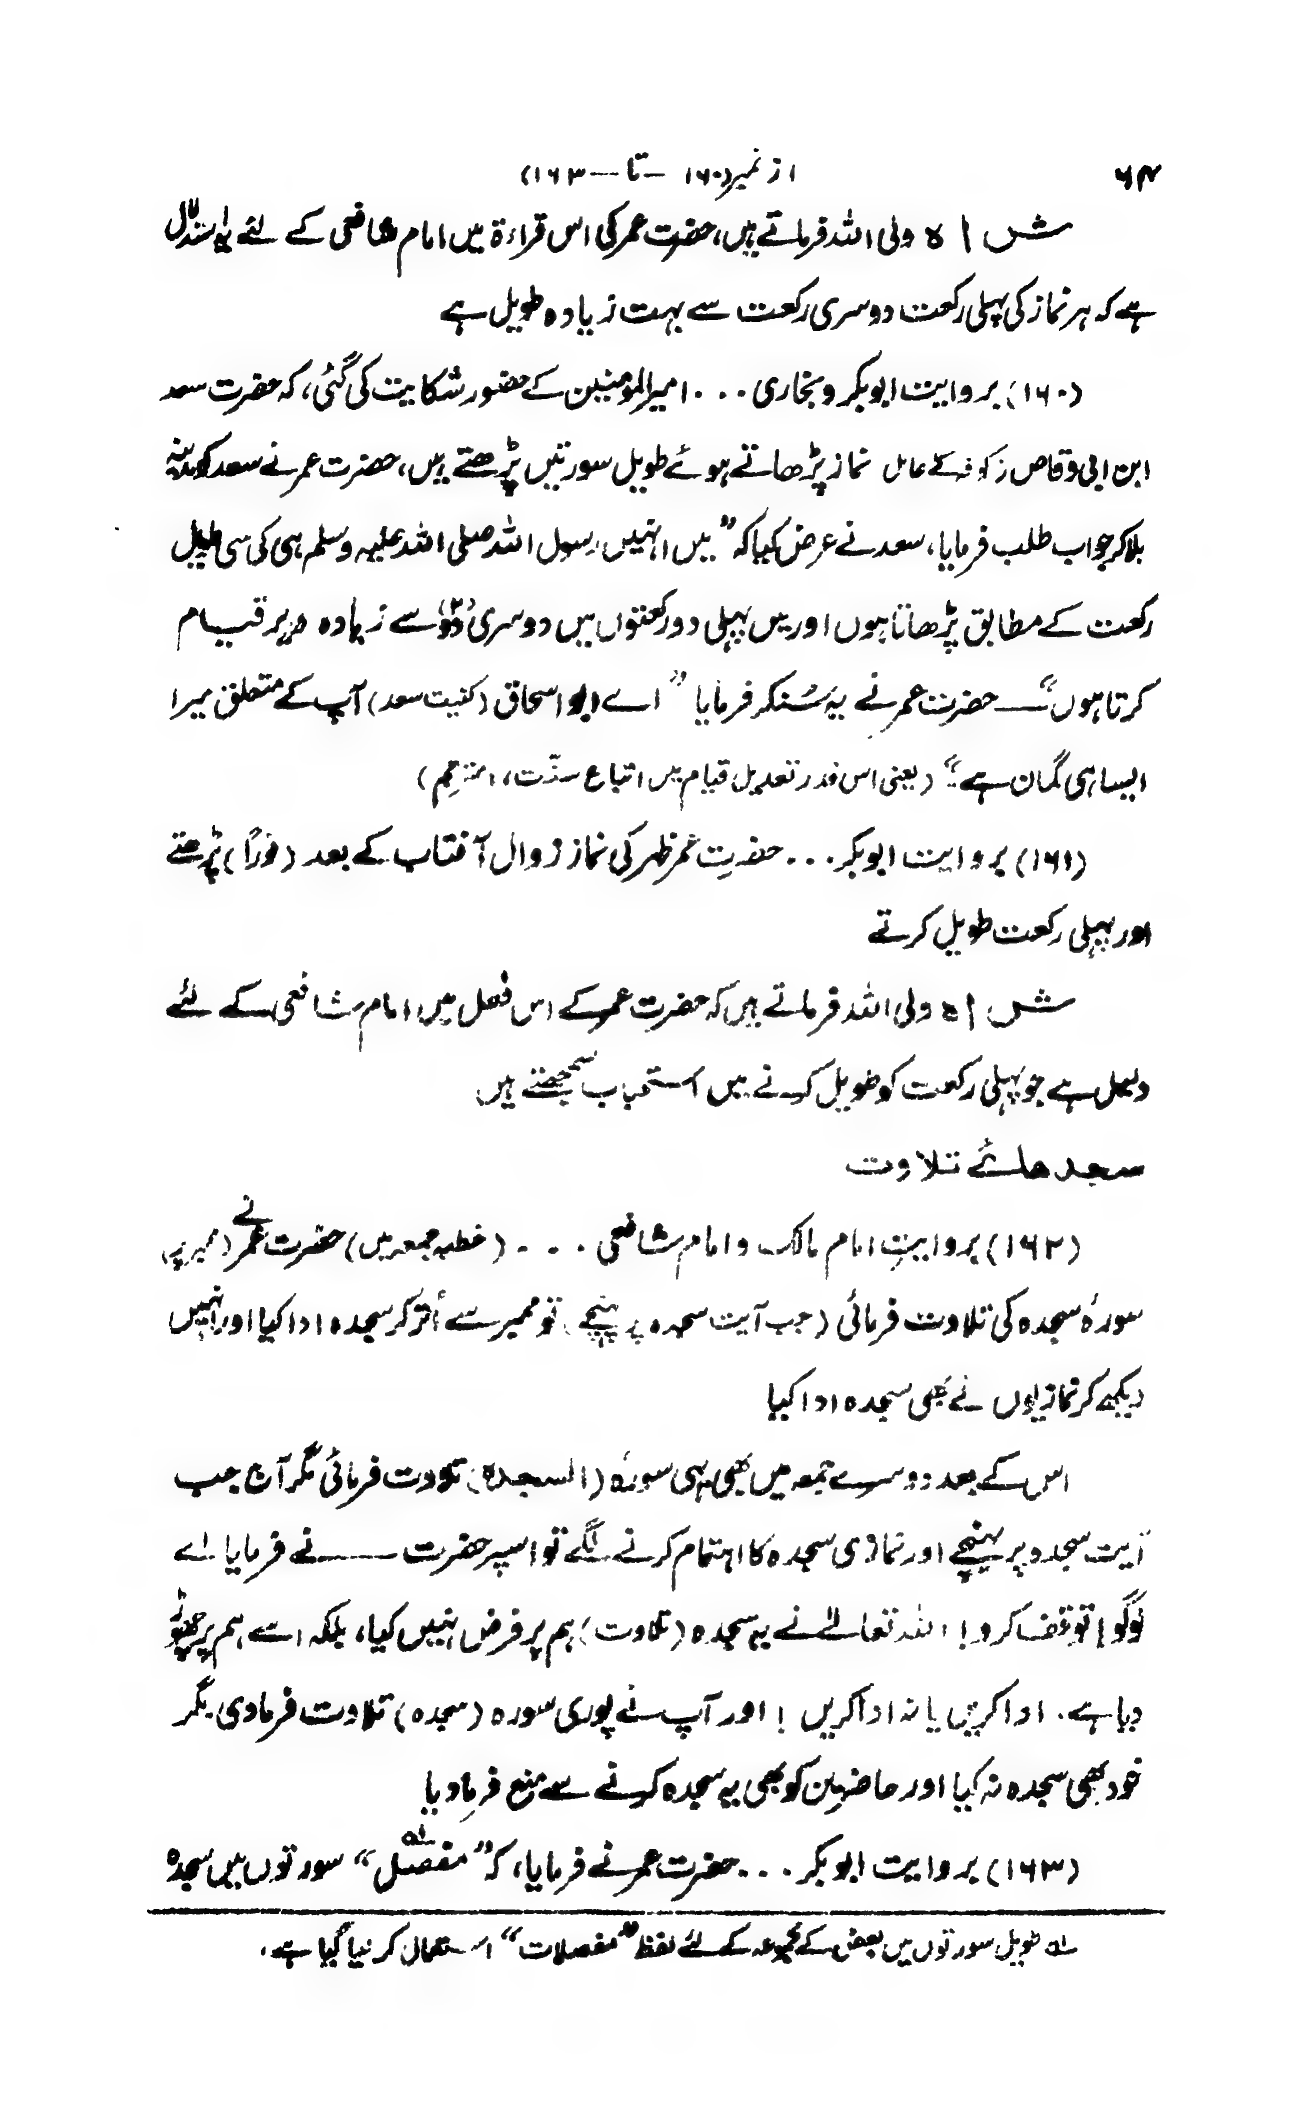 ۶۴
از نمبر (۱۶۰ — تا — ۱۶۳)
شاہ ولی اللہ فرماتے ہیں، حضرت عمر کی اس قراءۃ میں امام شافعی کے لئے یہ استدلال
ہے کہ ہر نماز کی پہلی رکعت دوسری رکعت سے بہت زیادہ طویل ہے
(۱۶۰) بروایت ابوبکر و بخاری ... امیرالمؤمنین کے حضور شکایت کی گئی، کہ حضرت سعد
ابن ابی وقاص (کوفہ کے عامل نماز پڑھاتے ہوئے طویل سورتیں پڑھتے ہیں، حضرت عمر نے سعد کو مدینہ
بلا کر جواب طلب فرمایا، سعد نے عرض کیا کہ "میں انہیں رسول اللہ صلی اللہ علیہ وسلم ہی کی سی طویل
رکعت کے مطابق پڑھاتا ہوں اور میں پہلی دو رکعتوں میں دوسری دو سے زیادہ دیر قیام
کرتا ہوں" — حضرت عمر نے یہ سُنکر فرمایا "اے ابو اسحاق (کنیت سعد) آپ کے متعلق میرا
ایسا ہی گمان ہے" (یعنی اس قدر تعدیل قیام میں اتباع سنّت، مترجم)
(۱۶۱) بروایت ابوبکر ... حضرت عمر ظہر کی نماز زوال آفتاب کے بعد (فوراً) پڑھتے
اور پہلی رکعت طویل کرتے
شاہ ولی اللہ فرماتے ہیں کہ حضرت عمر کے اس فعل میں امام شافعی کے لئے
دلیل ہے جو پہلی رکعت کو طویل کرنے میں استحباب سمجھتے ہیں
سجدھائے تلاوت
(۱۶۲) بروایت امام مالک و امام شافعی ... (خطبہ جمعہ میں) حضرت عمر نے (ممبر پر)
سورۂ سجدہ کی تلاوت فرمائی (جب آیت سجدہ پر پہنچے تو ممبر سے اُتر کر سجدہ ادا کیا اور انہیں
دیکھ کر نمازیوں نے بھی سجدہ ادا کیا
اس کے بعد دوسرے جمعہ میں بھی یہی سورۃ (السجدہ) تلاوت فرمائی مگر آج جب
آیت سجدہ پر پہنچے اور نمازی سجدہ کا اہتمام کرنے لگے تو اسپر حضرت — نے فرمایا اے
لوگو! توقف کرو! اللہ تعالےٰ نے یہ سجدہ (تلاوت) ہم پر فرض نہیں کیا، بلکہ اسے ہم پر چھوڑ
دیا ہے۔ ادا کریں یا نہ ادا کریں! اور آپ نے پوری سورہ (سجدہ) تلاوت فرمادی مگر
خود بھی سجدہ نہ کیا اور حاضرین کو بھی یہ سجدہ کرنے سے منع فرما دیا
(۱۶۳) بروایت ابوبکر ... حضرت عمر نے فرمایا، کہ "مفصل" سورتوں میں سجدہ
لہ طویل سورتوں میں بعض کے مجموعہ کے لئے لفظ "مفصلات" استعمال کر لیا گیا ہے،